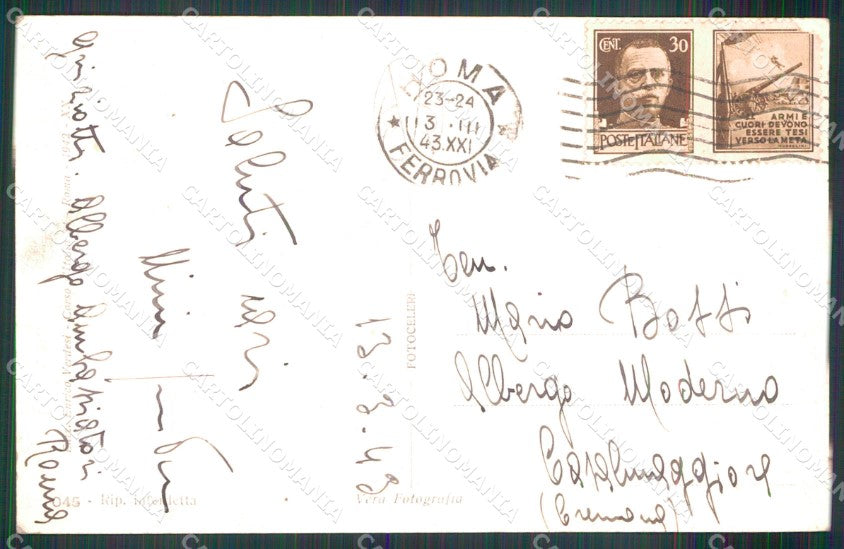 ROMA
23-24
13 III
43.XXI
FERROVIA
CENT. 30
POSTE ITALIANE
ARMI E
CUORI DEVONO
ESSERE TESI
VERSO LA META
Ten.
Mario Botti
Albergo Moderno
Casalmaggiore
(Cremona)
Saluti cari
13.3.43
Albergo Ambasciatori
Roma
FOTOCELERE
045 - Rip. interdetta
Vera Fotografia
CARTOLINOMANIA